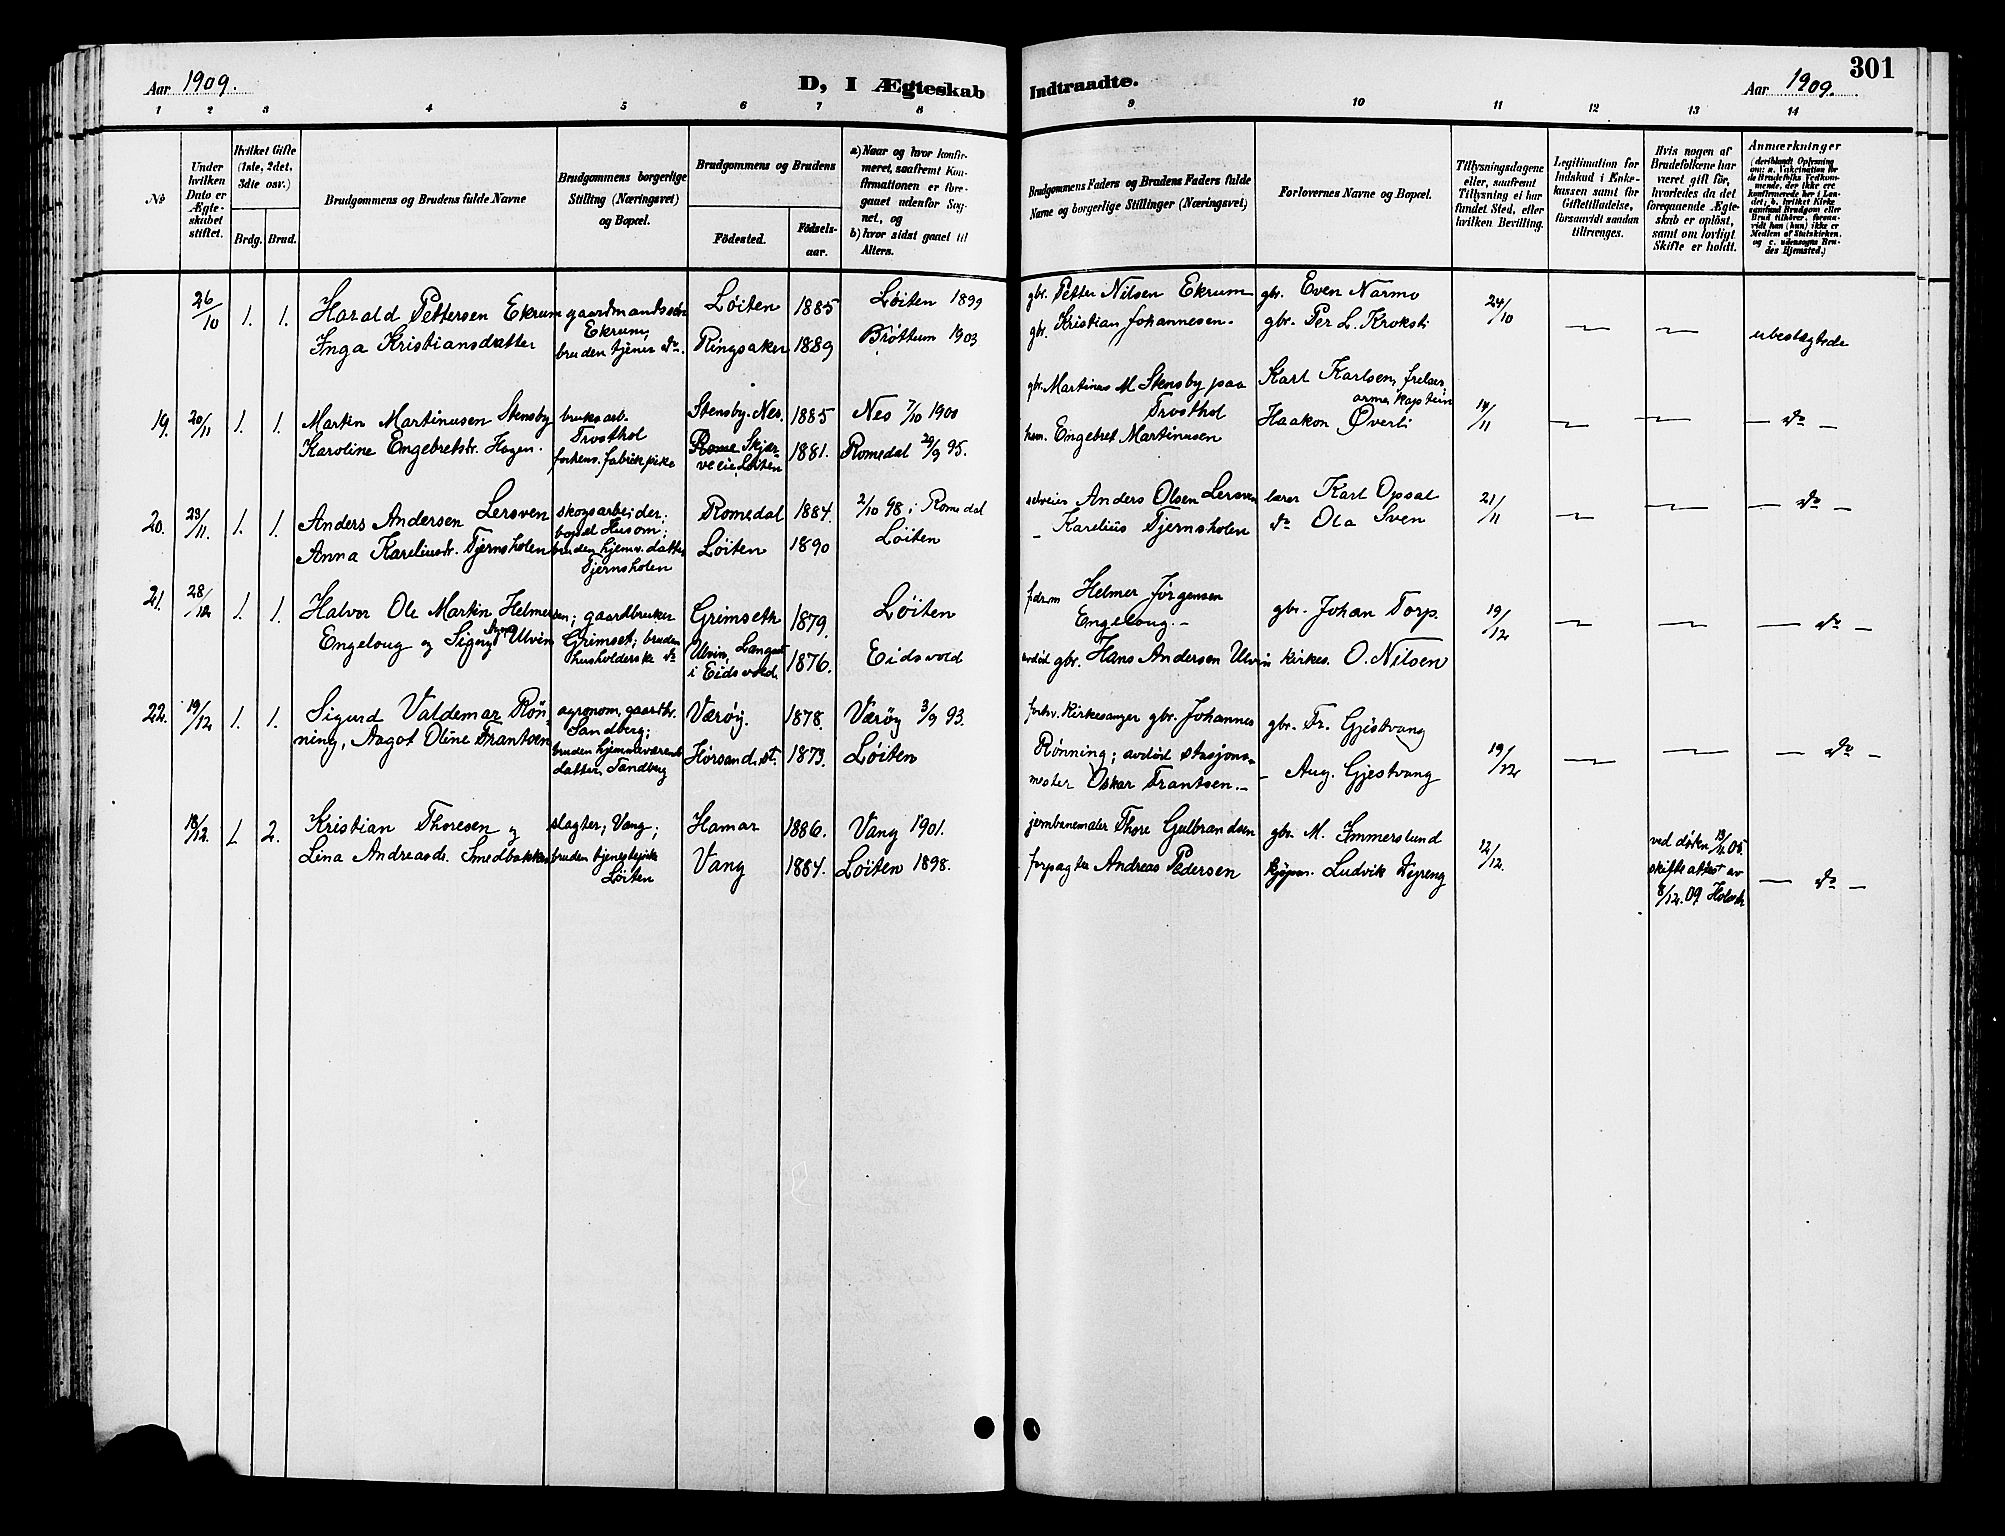 Aar 1909.
D, I Ægteskab
Indtraadte.
Aar 1909.
301
1 2 3 4 5 6 7 8 9 10 11 12 13 14
No
Under hvilken Dato er Ægteskabet stiftet.
Hvilket Gifte (1ste, 2det, 3die osv.)
Brdg. Brud.
Brudgommens og Brudens fulde Navne
Brudgommens borgerlige Stilling (Næringsvei) og Bopæl.
Brudgommens og Brudens
Fødested.
Fødselsaar.
a) Naar og hvor konfirmeret, saafremt Konfirmationen er foregaaet udenfor Sognet, og
b) hvor sidst gaaet til Alters.
Brudgommens Faders og Brudens Faders fulde Navne og borgerlige Stillinger (Næringsvei)
Forlovernes Navne og Bopæl.
Tillysningsdagene eller, saafremt Tillysning ei har fundet Sted, efter hvilken Bevilling.
Legitimation for Indskud i Enkekassen samt for Giftetilladelse, forsaavidt saadan tiltrænges.
Hvis nogen af Brudefolkene har været gift før, hvorledes da det foregaaende Ægteskab er opløst, samt om lovligt Skifte er holdt.
Anmærkninger
(deriblandt Oplysning om: a. Vakcination for de Brudefolks Vedkommende, der ikke ere konfirmerede her i Landet; b. hvilket Kirkesamfund Brudgom eller Brud tilhører, forsaavidt han (hun) ikke er Medlem af Statskirken, og c. udensogns Brudes Hjemsted.)
26/10 1. 1. Harald Pettersen Ekrum gaardmandssøn Løiten 1885 Løiten 1899
Inga Kristiansdatter Ekrum; bruden tjener do. Ringsaker 1889 Brøttum 1903
gbr. Petter Nilsen Ekrum gbr. Even Narmo 24/10
gbr. Kristian Johannesen. gbr. Per L. Kroksti ubeslægtede
19. 20/11 1. 1. Martin Martinusen Stensby bruksarb. Trosthol Stensby. Nes. 1885 Nes 7/10 1900
Karoline Engebretsdr. Hagen. forhens. fabrikpike Skjærveeie, Løiten 1881. Romedal 29/9 95.
gbr. Martinus M Stensby paa Trosthol Karl Karlsen, frelsesarme, kaptein 14/11
hsm. Engebret Martinusen Haakon Øverli - do -
20. 23/11. 1. 1. Anders Andersen Lersven skogsarbeider; Romedal 1884. 2/10 98. i Romedal
Anna Kareliusdr. Tjernsholen bopæl Husom; bruden hjemv. datter Tjernsholen Løiten 1890 Løiten
selveier Anders Olsen Lersven lærer Karl Opsal 21/11
- Karelius Tjernsholen do Ola Sven - do -
21. 28/12 1. 1. Halvor Ole Martin Helmersen; gaardbruker Grimseth 1879. Løiten
Engeloug og Ulvin Grimset; bruden husholderske do Ulvin, Langset i Eidsvold. 1876. Eidsvold
fdrm Helmer Jørgensen Engeloug. - gbr. Johan Torp. 19/12
avdød gbr. Hans Andersen Ulvin kirkes. O. Nilsen - do -
22. 19/12 1. 1. Sigurd Valdemar Røn- agronom, gaardbr. Sandberg; Værøy. 1878. Værøy 3/9 93.
ning, Aagot Oline Frantsen bruden hjemmeværende datter, Sandberg 1873. Løiten
forhv. kirkesanger gbr. Johannes gbr. Fr. Gjestvang
Rønning; avdød stasjons- 19/12 - do -
mester Oskar Frantsen. - - Aug. Gjestvang
18/12. 1. 2. Kristian Thoresen og slagter, Vang; Hamar 1886. Vang 1901.
Lina Andreasdr. Smedbakken bruden tjenestepike Løiten Vang 1884. Løiten 1898.
jernbanemaler Thore Gulbrandsen gbr. M. Immerslund 12/12.
forpagter Andreas Pedersen Ludvik
ved døden
skifteattest av
8/12. 09 - do -